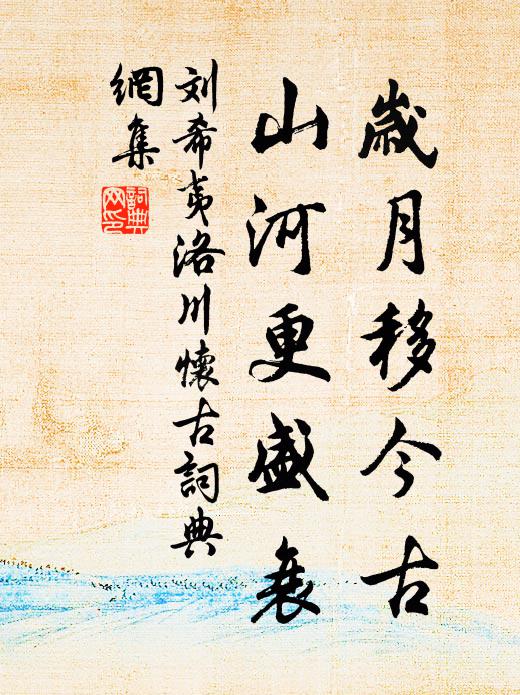 歲月移今古
山河更盛衰
刘希夷洛川懷古詞典
網集
詞典
网印